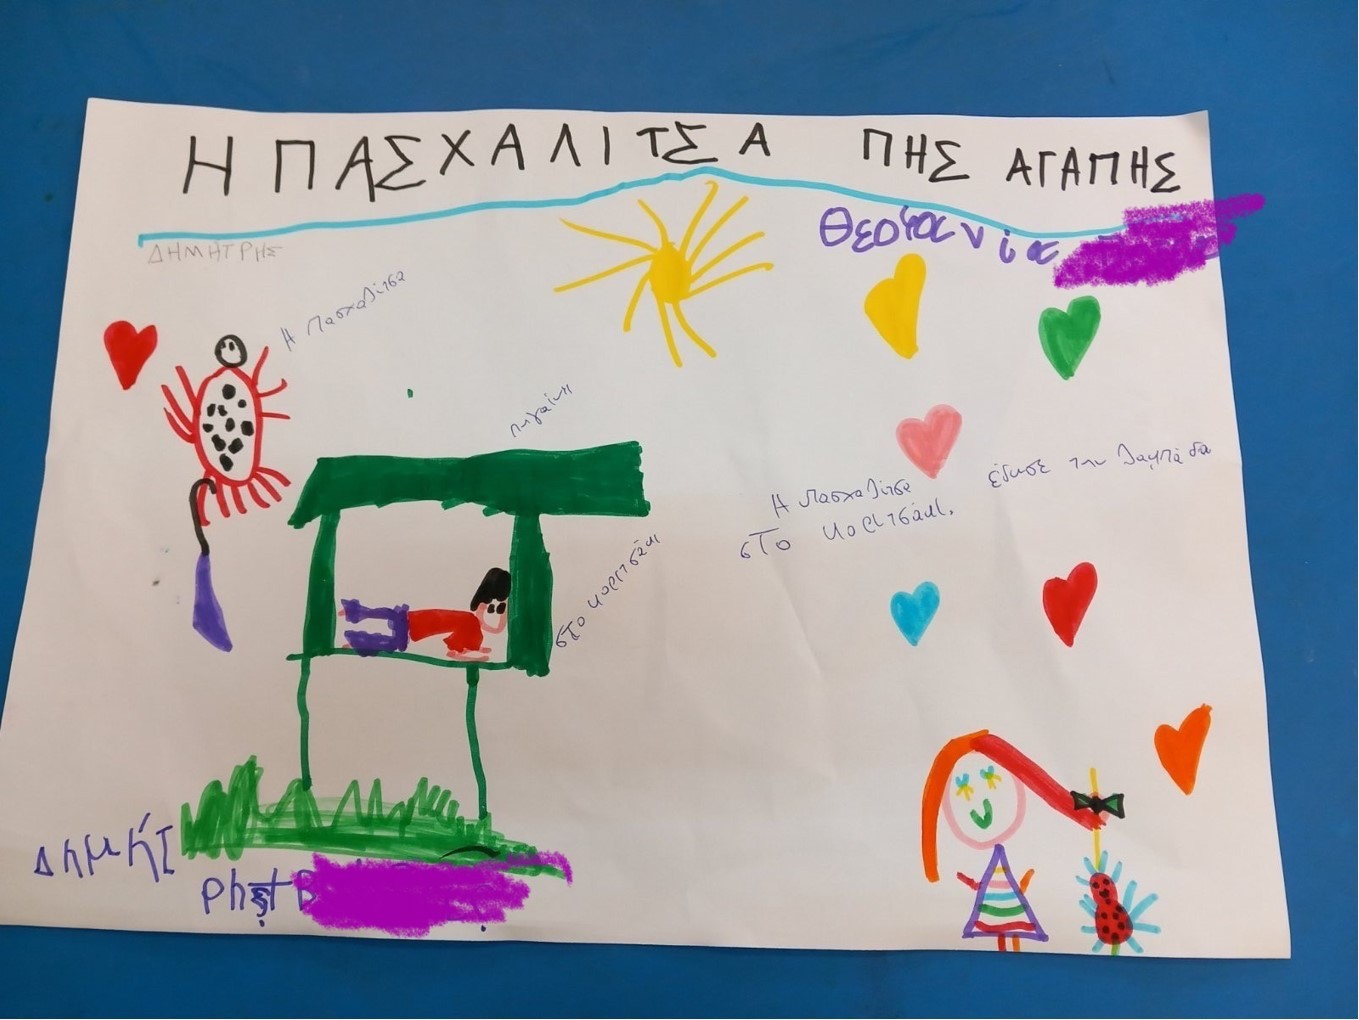 Η ΠΑΣΧΑΛΙΤΣΑ ΠΗΣ ΑΓΑΠΗΣ
ΔΗΜΑΤΡΗΣ
Θεοφανία
Η πασχαλίτσα
πηγαίνει
στο κοριτσάκι
Η πασχαλίτσα έδωσε την λαμπάδα
στο κοριτσάκι.
Δημή